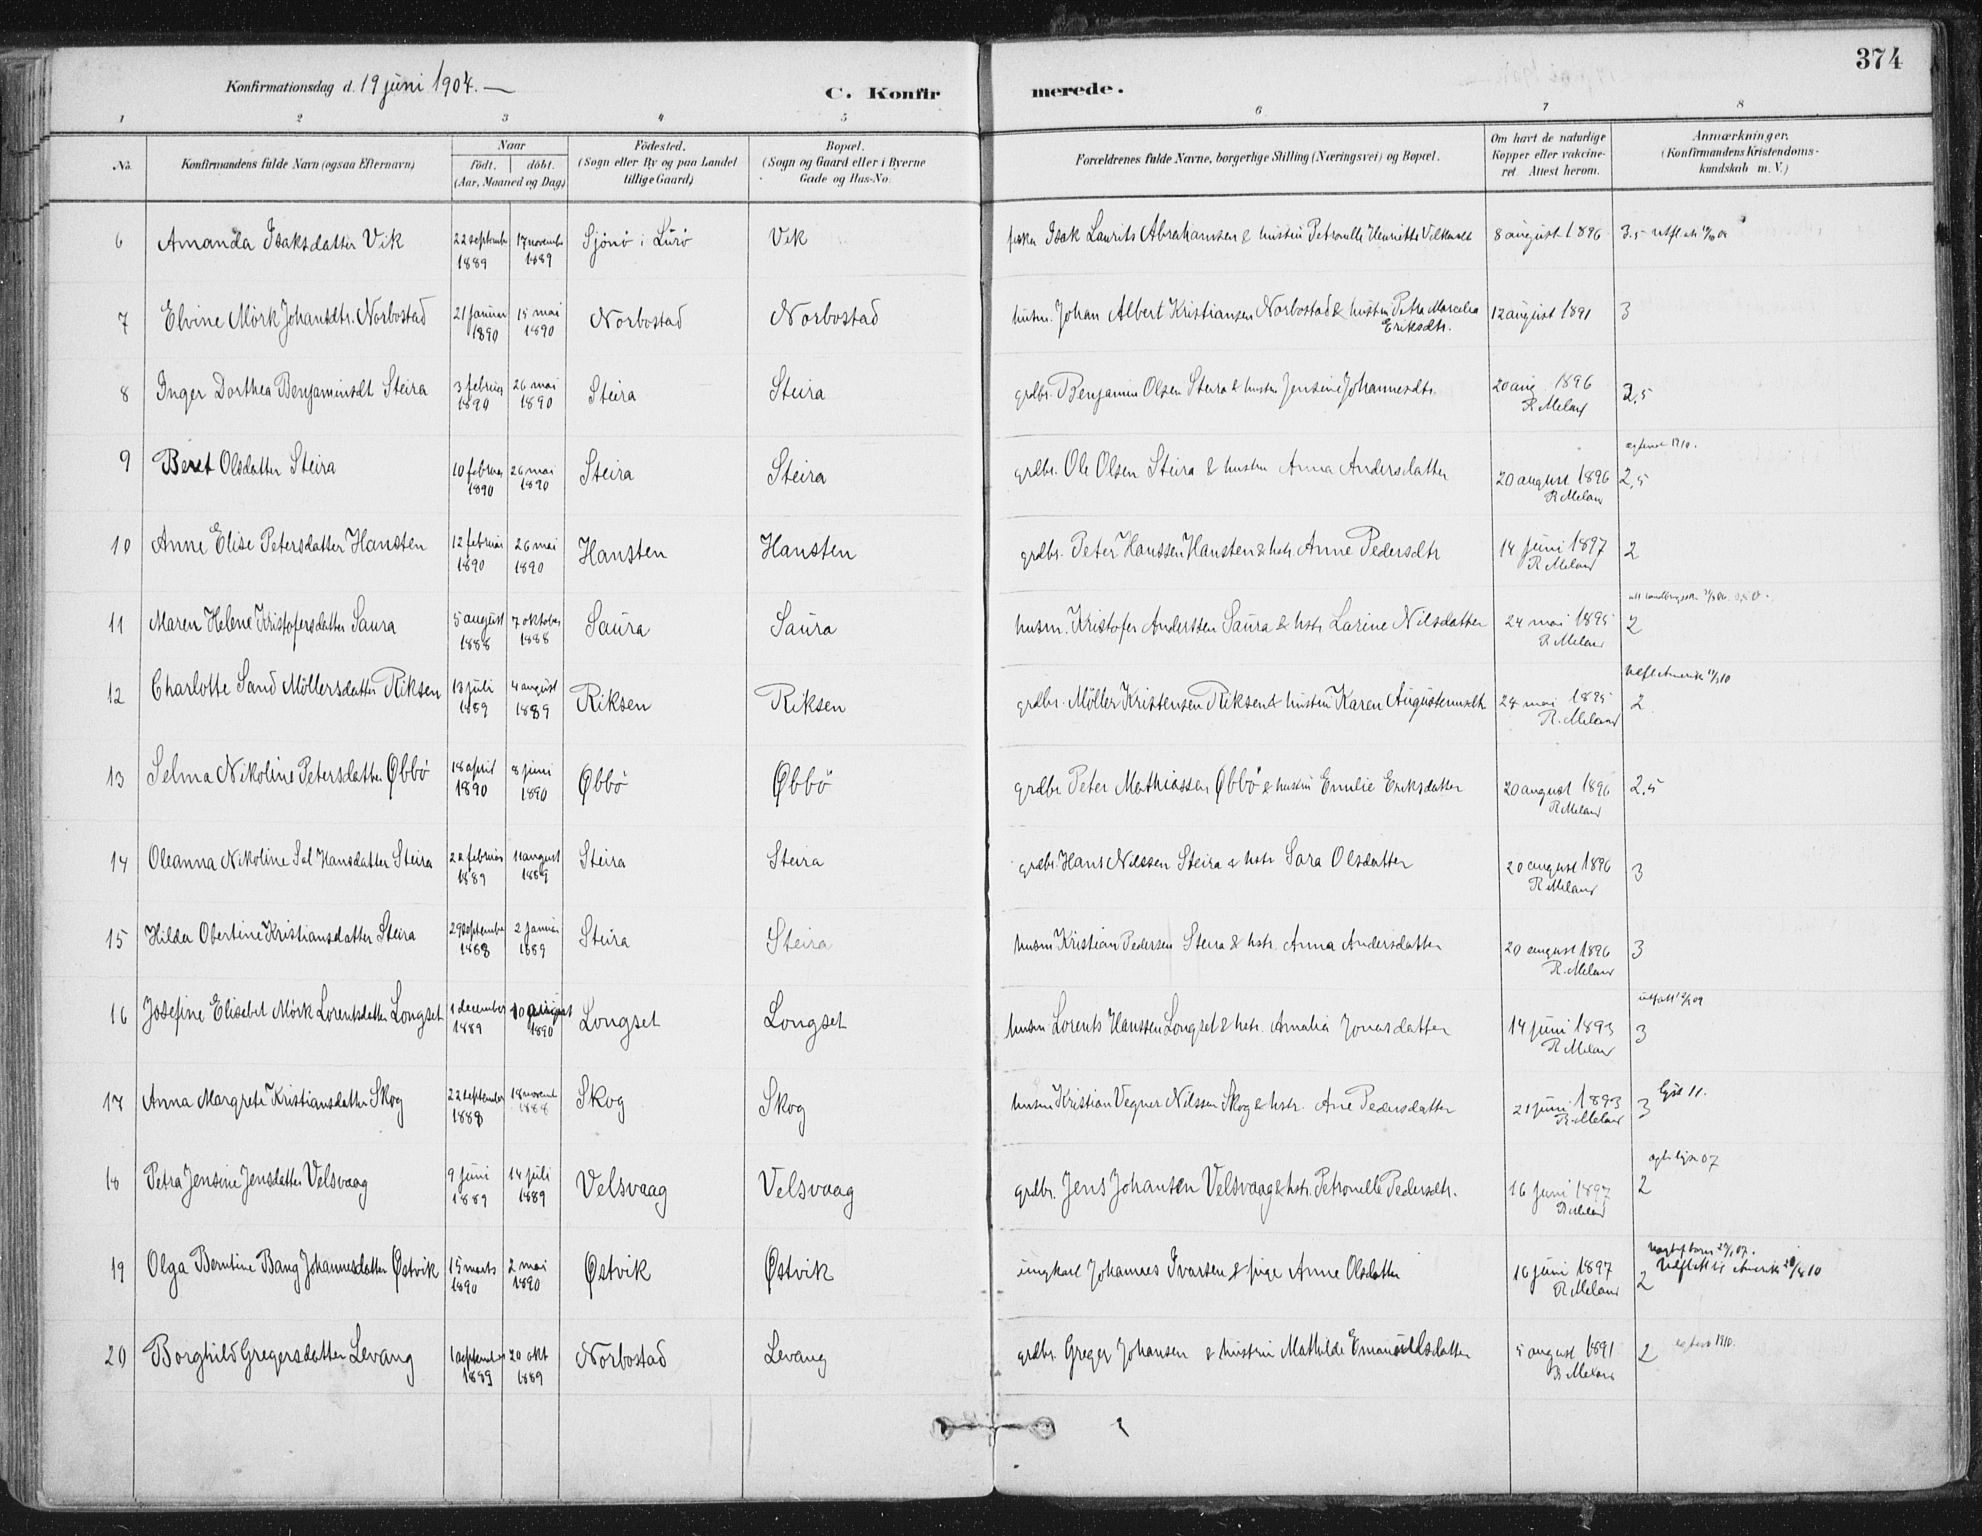 374
Konfirmationsdag d. 19 juni 1904. —
C. Konfirmerede.
1 2 3 4 5 6 7 8
No. Konfirmandens fulde Navn (ogsaa Efternavn) Naar födt. döbt. (Aar, Maaned og Dag) Födested. (Sogn eller By og paa Landet tillige Gaard) Bopæl. (Sogn og Gaard eller i Byerne Gade og Hus-No. Forældrenes fulde Navne, borgerlige Stilling (Næringsvei) og Bopæl. Om havt de naturlige Kopper eller vaccineret Attest herom. Anmærkninger. (Konfirmandens Kristendomskundskab m. V.)
6 Amanda Isaksdatter Vik 22 septemb 1889 17 novemb 1889 Sjönö i Lurö Vik fisker Isak Laurits Abrahamsen & hustru Petronelle Henriette 8 august 1896 3.5
7 Elvine Mörk Johansdtr. Norbostad 21 januar 1890 15 mai 1890 Norbostad Norbostad husm. Johan Albert Kristiansen Norbostad & hustru Petra Marcelia Eriksdtr. 12 august 1891 3
8 Inger Dorthea Benjaminsdt Steira 3 februar 1890 26 mai 1890 Steira Steira grdbr. Benjamin Olsen Steira & hustru Jensine Johannesdtr. 20 aug 1896 R. Meland 2,5
9 Beret Olsdatter Steira 10 februar 1890 26 mai 1890 Steira Steira grdbr. Ole Olsen Steira & hustru Anna Andersdatter 20 august 1896 R Meland 1910. 2,5
10 Anne Elise Petersdatter Hansten 12 februar 1890 26 mai 1890 Hansten Hansten grdbr. Peter Hanssen Hansten & hstr Anne Pedersdtr 14 juni 1897 R Meland 2
11 Maren Helene Kristofersdatter Saura 5 august 1888 7 oktober 1888 Saura Saura husm. Kristofer Anderssen Saura & hstr Larine Nilsdatter 24 mai 1895 R Meland 2
12 Charlotte Sand Möllersdatter Riksen 13 juli 1889 4 august 1889 Riksen Riksen grdbr. Möller Kristensen Riksen & hustru Karen 24 mai 1895 R. Meland 2
13 Selma Nikoline Petersdatter Øbbö 18 april 1890 8 juni 1890 Øbbö Øbbö grdbr Peter Mathiassen Øbbö & hustru Emilie Eriksdatter 20 august 1896 R Meland 2.5
14 Oleanna Nikoline Sel Hansdatter Steira 22 februar 1889 11 august 1889 Steira Steira grdbr. Hans Nilssen Steira & hstr Sara Olsdatter 20 august 1896 R Meland 3
15 Hilda Obertine Kristiansdatter Steira 29 septembe 1888 2 januar 1889 Steira Steira husm Kristian Pedersen Steira & hstr. Anna Andersdatter 20 august 1896 R. Meland 3
16 Josefine Elisebet Mörk Lorentsdatter Longset 1 december 1889 10 1890 Longset Longset husm Lorents Hanssen Longset & hstr. Amalia Jonasdatter 14 juni 1893 R Meland 3
17 Anna Margrete Kristiansdatter Skog 22 september 1888 18 novemb 1888 Skog Skog husm Kristian Vegner Nilssen Skog & hstr. Ane Pedersdatter 21 juni 1893 R. Meland 3
18 Petra Jensine Jensdatter Velsvaag 9 juni 1889 14 juli 1889 Velsvaag Velsvaag grdbr. Jens Johansen Velsvaag & hstr. Petronelle Pedersdtr. 16 juni 1897 R Meland 07 2
19 Olga Berntine Bang Johannesdatter Østvik 15 marts 1890 2 mai 1890 Østvik Østvik ungkarl Johannes Ivarsen & pige Anne Olsdatter 16 juni 1897 R Meland 2
20 Borghild Gregersdatter Levang 1 september 1889 20 okt 1889 Norbostad Levang grdbr. Greger Johansen & hustru Mathilde Emanuelsdatter 5 august 1891 R Meland 2 1910.